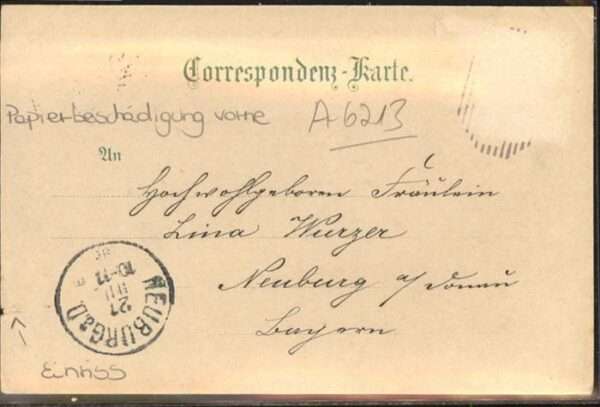 Correspondenz-Karte.
Papierbeschädigung vorne
A 6213
An
Hochwohlgeboren Fräulein
Lina Wurzer
Neuburg a/ Donau
Bayern
NEUBURG a. D.
21
10-11
Einriss